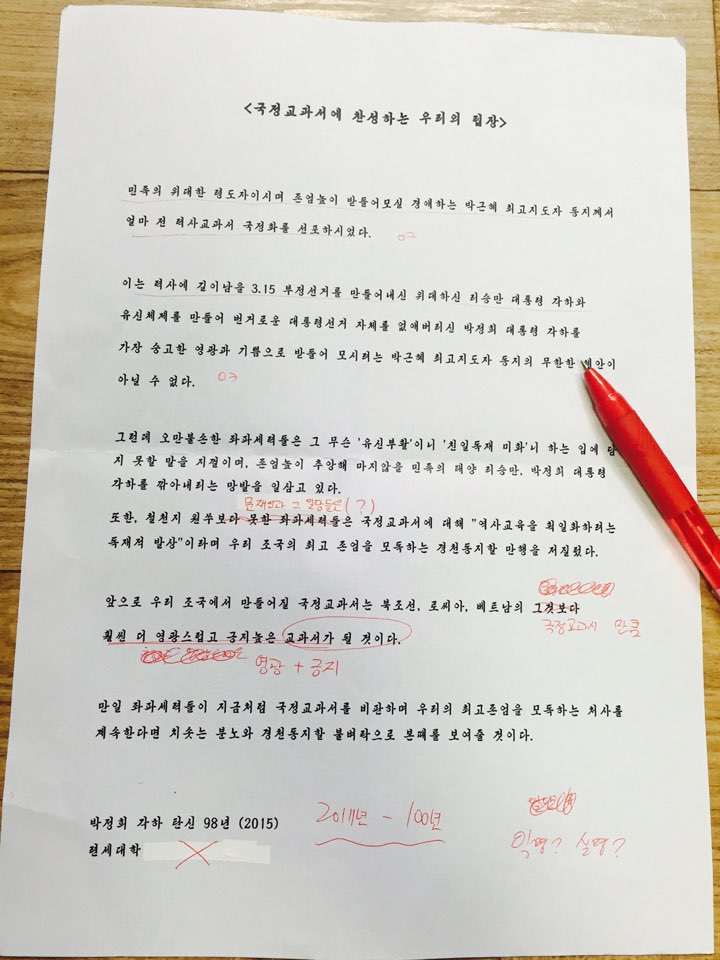 <국정교과서에 찬성하는 우리의 립장>
민족의 위대한 령도자이시며 존엄높이 받들어모실 경애하는 박근혜 최고지도자 동지께서
얼마 전 력사교과서 국정화를 선포하시었다.
이는 력사에 길이남을 3.15 부정선거를 만들어내신 위대하신 리승만 대통령 각하와
유신체제를 만들어 번거로운 대통령선거 자체를 없애버리신 박정희 대통령 각하를
가장 숭고한 영광과 기쁨으로 받들어 모시려는 박근혜 최고지도자 동지의 무한한 혜안이
아닐 수 없다.
그런데 오만불손한 좌파세력들은 그 무슨 '유신부활'이니 '친일독재 미화'니 하는 입에 담
지 못할 말을 지껄이며, 존엄높이 추앙해 마지않을 민족의 태양 리승만, 박정희 대통령
각하를 깎아내리는 망발을 일삼고 있다.
문재인과 그 일당들은(?)
또한, 철천지 원쑤보다 못한 좌파세력들은 국정교과서에 대해 "역사교육을 획일화하려는
독재적 발상"이라며 우리 조국의 최고 존엄을 모독하는 경천동지할 만행을 저질렀다.
앞으로 우리 조국에서 만들어질 국정교과서는 북조선, 로씨아, 베트남의 그것보다
국정교과서 만큼
훨씬 더 영광스럽고 긍지높은 교과서가 될 것이다.
영광 + 긍지
만일 좌파세력들이 지금처럼 국정교과서를 비판하며 우리의 최고존엄을 모독하는 처사를
계속한다면 치솟는 분노와 경천동지할 불벼락으로 본때를 보여줄 것이다.
박정희 각하 탄신 98년 (2015)
2017년 - 100년
련세대학
익명? 실명?